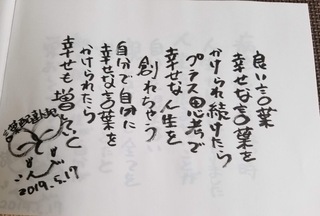 良い言葉
幸せな言葉を
かけられ続けたら
プラス思考で
幸せな人生を
創れちゃう
自分で自分に
幸せな言葉を
かけられたら
幸せも増える
2019.5.17